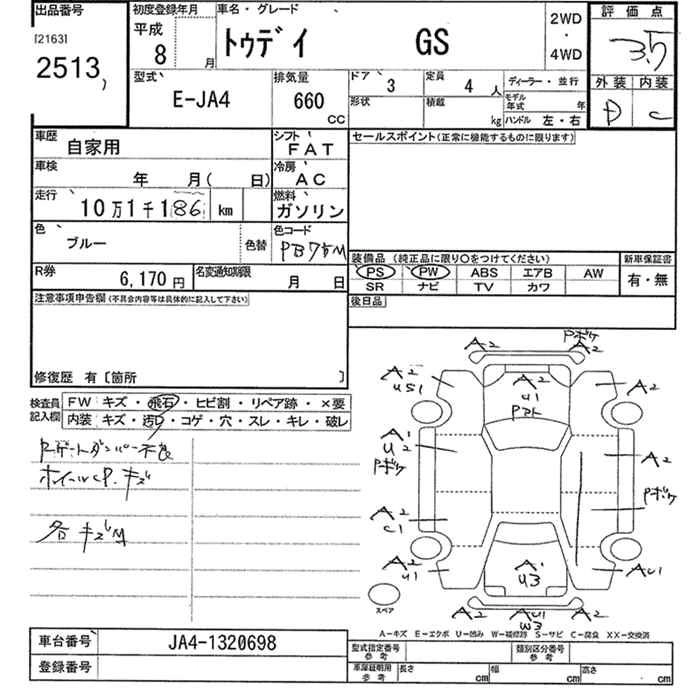 出品番号
[2163]
2513
初度登録年月
平成
8 月
車名・グレード
トゥデイ GS
2WD
・
4WD
評価点
3.5
外装 内装
D C
型式
E-JA4
排気量
660
CC
ドア 3
定員 4 人
ディーラー・並行
形状
積載 kg
モデル年式 年
ハンドル 左・右
車歴
自家用
シフト
FAT
車検
年 月( 日)
冷房
AC
走行
10万1千186 km
燃料
ガソリン
色
ブルー
色替
色コード
PB75M
R券
6,170円
名変通知期限
月 日
セールスポイント(正常に機能するものに限ります)
装備品 (純正品に限り○をつけてください)
新車保証書
PS PW ABS エアB AW
有・無
SR ナビ TV カワ
後日品
注意事項申告欄(不具合内容等は具体的に記入して下さい)
修復歴 有〔箇所 〕
検査員
記入欄
FW キズ・飛石・ヒビ割・リペア跡・×要
内装 キズ・汚れ・コゲ・穴・スレ・キレ・破レ
Rゲートダンパー不良
ホイールCP.キズ
各キズM
A2
Pボケ
A2
A2
US1
A2
A2
U1
A1
U2
Pボケ
A2
Pボケ
A2
C1
A2
U1
A1
U3
AU1
A2
AU1
W3
A2
スペア
A-キズ E-エクボ U-凹み W-補修跡 S-サビ C-腐食 XX-交換済
車台番号
JA4-1320698
登録番号
型式指定番号
参考
類別区分番号
参考
車庫証明用
参考
長さ cm
幅 cm
高さ cm